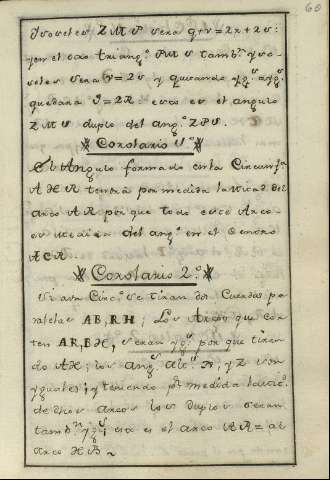 60
Ysoceles Z M P sera q+r=2x+2s:
y en el otro triang.º P M S tamb.n yso-
celes sera r=2s y quitando yg.s a yg.s
quedara q=2x esto es el angulo
Z M S duplo del ang.º Z P S.
Corolario 1º
El Angulo formado en la Circunf.a
A H R tendrá por medida la mitad del
arco A R por que todo este Arco
es medida del ang.º en el Centro
A C R.
Corolario 2.º
Si a un Circ.º se tiran dos Cuerdas pa-
ralelas AB, RH; Los Arcos que cor-
ten AR, BH, seran yg.s por que tiran-
do AH; los ang.s alt.s A, y Z son
yguales; y teniendo p.r medida la mit.d
de dhos arcos los duplos seran
tamb.n yg.s; esto es el arco A R = al
arco H B